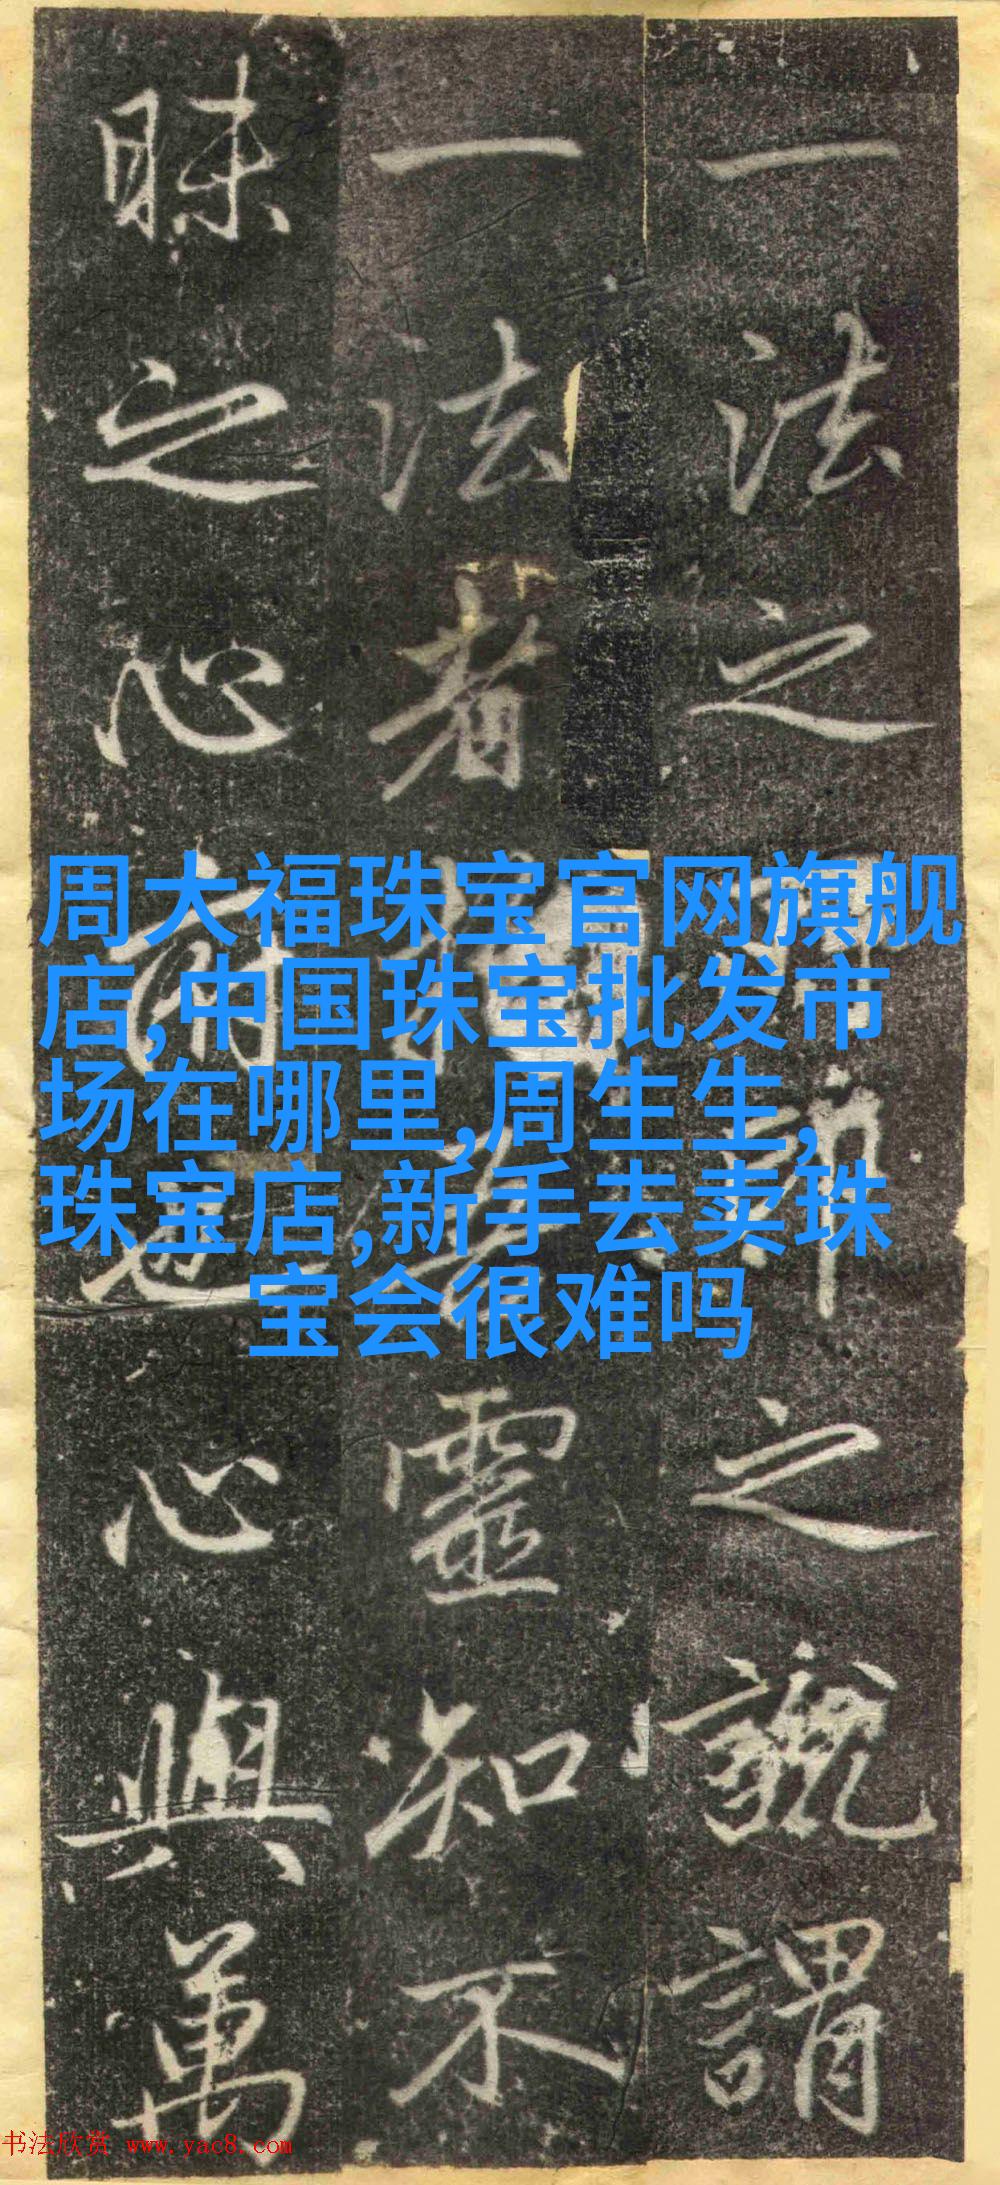 一法之之號謂
一法者靈知不
昧之心也心與萬
周大福珠宝官网旗舰
店,中国珠宝批发市
场在哪里,周生生,
珠宝店,新手去卖珠
宝会很难吗
书法欣赏 www.yac8.com